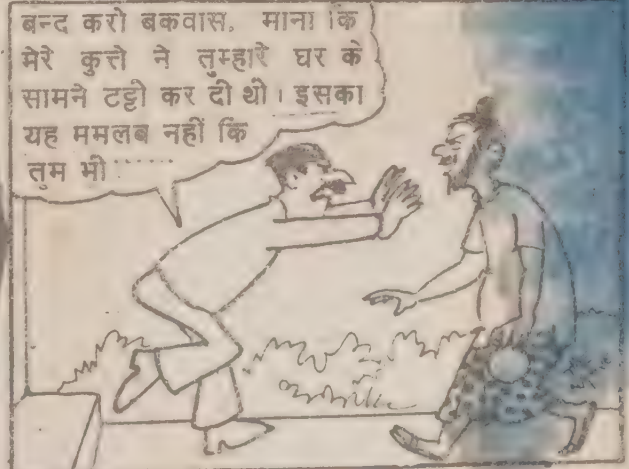 बन्द करो बकवास. माना कि
मेरे कुत्ते ने तुम्हारे घर के
सामने टट्टी कर दी थी। इसका
यह ममलब नहीं कि
तुम भी ......